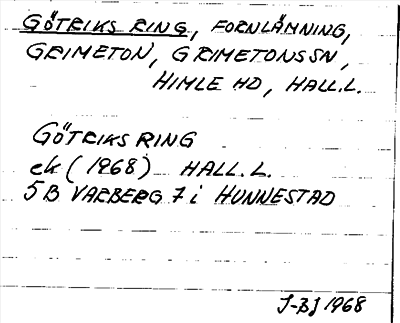 GÖTRIKS RING, FORNLÄMNING,
GRIMETON, GRIMETONS SN,
HIMLE HD, HALL.L.
GÖTRIKS RING
ek (1968) HALL. L.
5B VARBERG 7 i HUNNESTAD
J-BJ 1968